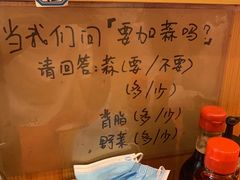 当我们问『要加蒜吗?』
请回答:蒜(要/不要)
(多/少)
背脂(多/少)
野菜(多/少)